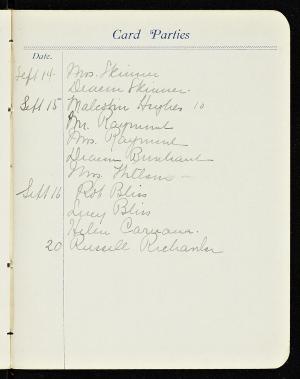 Card Parties
Date.
Sept 14 Mrs. Skinner
Deacon Skinner.
Sept 15 Malcolm Hughes 10
Mr. Raymond
Mrs. Raymond
Deacon
Mrs.
Sept 16 Rob Bliss
Lucy Bliss
Helen
20 Russell